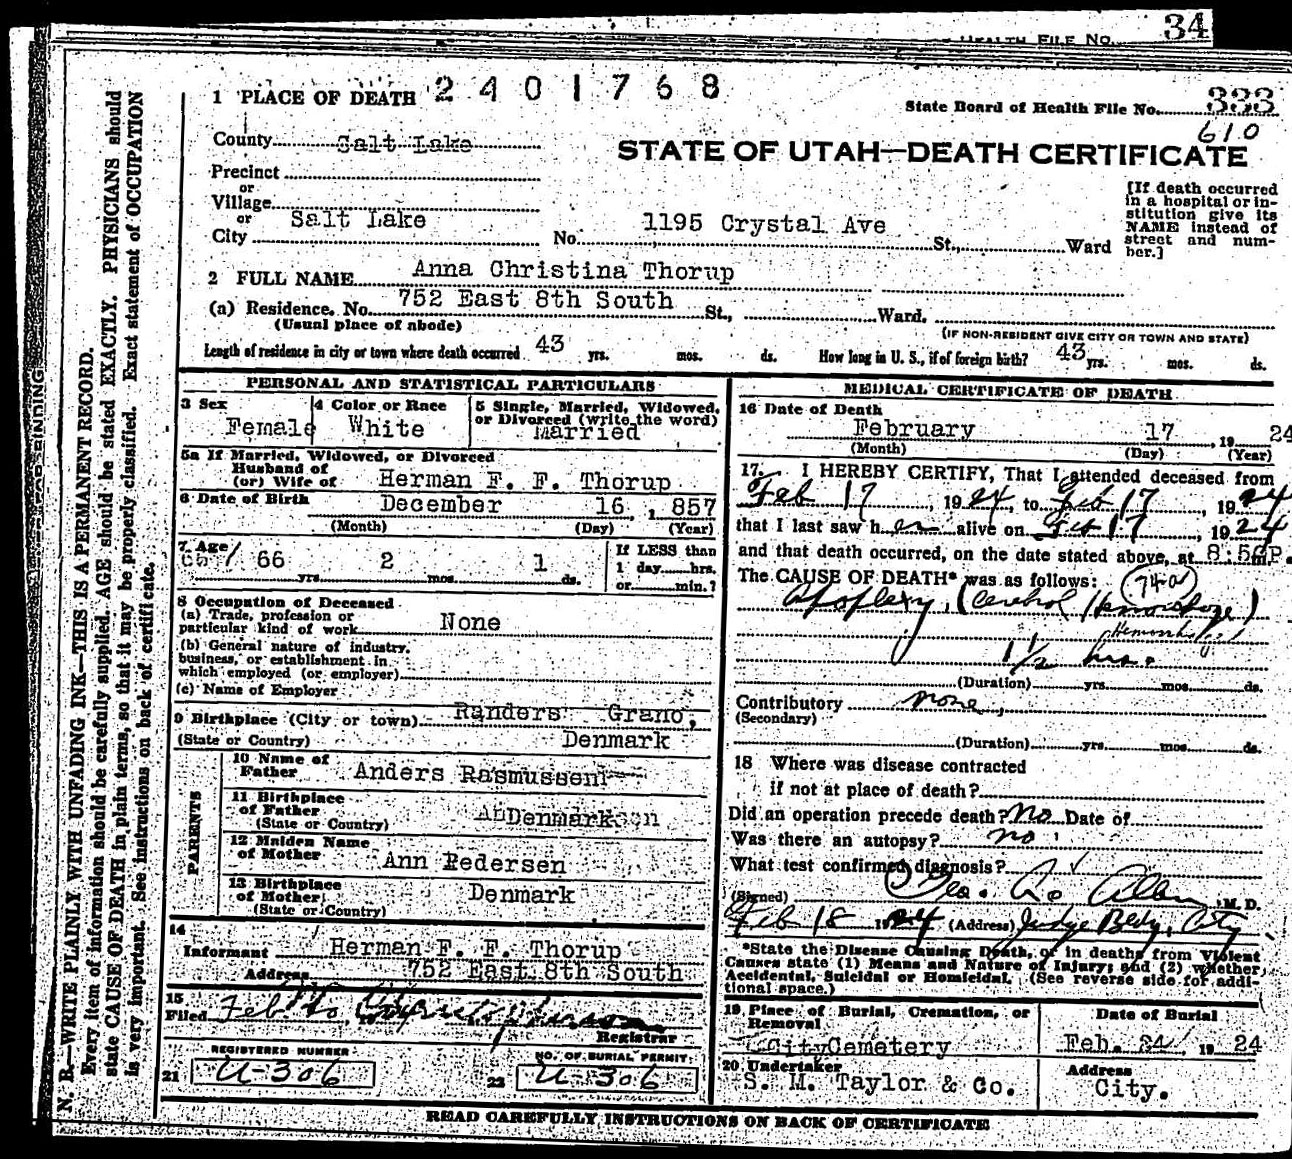 34
HEALTH FILE NO.
1 PLACE OF DEATH 2401768
State Board of Health File No. 333
610
County Salt Lake
STATE OF UTAH—DEATH CERTIFICATE
Precinct
or
Village
or
City Salt Lake No. 1195 Crystal Ave St., Ward
[If death occurred
in a hospital or in-
stitution give its
NAME instead of
street and num-
ber.]
2 FULL NAME Anna Christina Thorup
(a) Residence. No. 752 East 8th South St., Ward.
(Usual place of abode)
(IF NON-RESIDENT GIVE CITY OR TOWN AND STATE)
Length of residence in city or town where death occurred 43 yrs. mos. ds. How long in U. S., if of foreign birth? 43 yrs. mos. ds.
PERSONAL AND STATISTICAL PARTICULARS
3 Sex Female
4 Color or Race White
5 Single, Married, Widowed,
or Divorced (write the word)
Married
5a If Married, Widowed, or Divorced
Husband of
(or) Wife of Herman F. F. Thorup
6 Date of Birth December 16, 857
(Month) (Day) (Year)
7 Age 66 yrs. 2 mos. 1 ds.
If LESS than
1 day hrs.
or min.?
8 Occupation of Deceased
(a) Trade, profession or
particular kind of work None
(b) General nature of industry,
business, or establishment in
which employed (or employer)
(c) Name of Employer
9 Birthplace (City or town) Randers Grano,
(State or Country) Denmark
PARENTS
10 Name of
Father Anders Rasmussen
11 Birthplace
of Father Denmark
(State or Country)
12 Maiden Name
of Mother Ann Pedersen
13 Birthplace
of Mother Denmark
(State or Country)
14
Informant Herman F. F. Thorup
Address 752 East 8th South
15
Filed Feb
Registrar
REGISTERED NUMBER
21 U-306
NO. OF BURIAL PERMIT
22 U-306
MEDICAL CERTIFICATE OF DEATH
16 Date of Death
February 17, 19 24
(Month) (Day) (Year)
17. I HEREBY CERTIFY, That I attended deceased from
Feb 17, 1924, to Feb 17, 1924
that I last saw her alive on Feb 17, 1924
and that death occurred, on the date stated above, at 8.50P.m.
The CAUSE OF DEATH* was as follows: 74a
Apoplexy, (Cerebral Hemorrhage)
Hemorrhage
1 1/2 hrs.
(Duration) yrs. mos. ds.
Contributory none
(Secondary)
(Duration) yrs. mos. ds.
18 Where was disease contracted
if not at place of death?
Did an operation precede death? No Date of
Was there an autopsy? no
What test confirmed diagnosis?
(Signed) Geo. Allen, M. D.
Feb 18 1924 (Address) Judge Bldg, City
*State the Disease Causing Death, or in deaths from Violent
Causes state (1) Means and Nature of Injury; and (2) whether
Accidental, Suicidal or Homicidal. (See reverse side for addi-
tional space.)
19 Place of Burial, Cremation, or
Removal
City Cemetery
Date of Burial
Feb. 24, 19 24
20 Undertaker
S. M. Taylor & Co.
Address
City.
READ CAREFULLY INSTRUCTIONS ON BACK OF CERTIFICATE
N. B.—WRITE PLAINLY WITH UNFADING INK—THIS IS A PERMANENT RECORD.
Every item of information should be carefully supplied. AGE should be stated EXACTLY. PHYSICIANS should
state CAUSE OF DEATH in plain terms, so that it may be properly classified. Exact statement of OCCUPATION
is very important. See instructions on back of certificate.